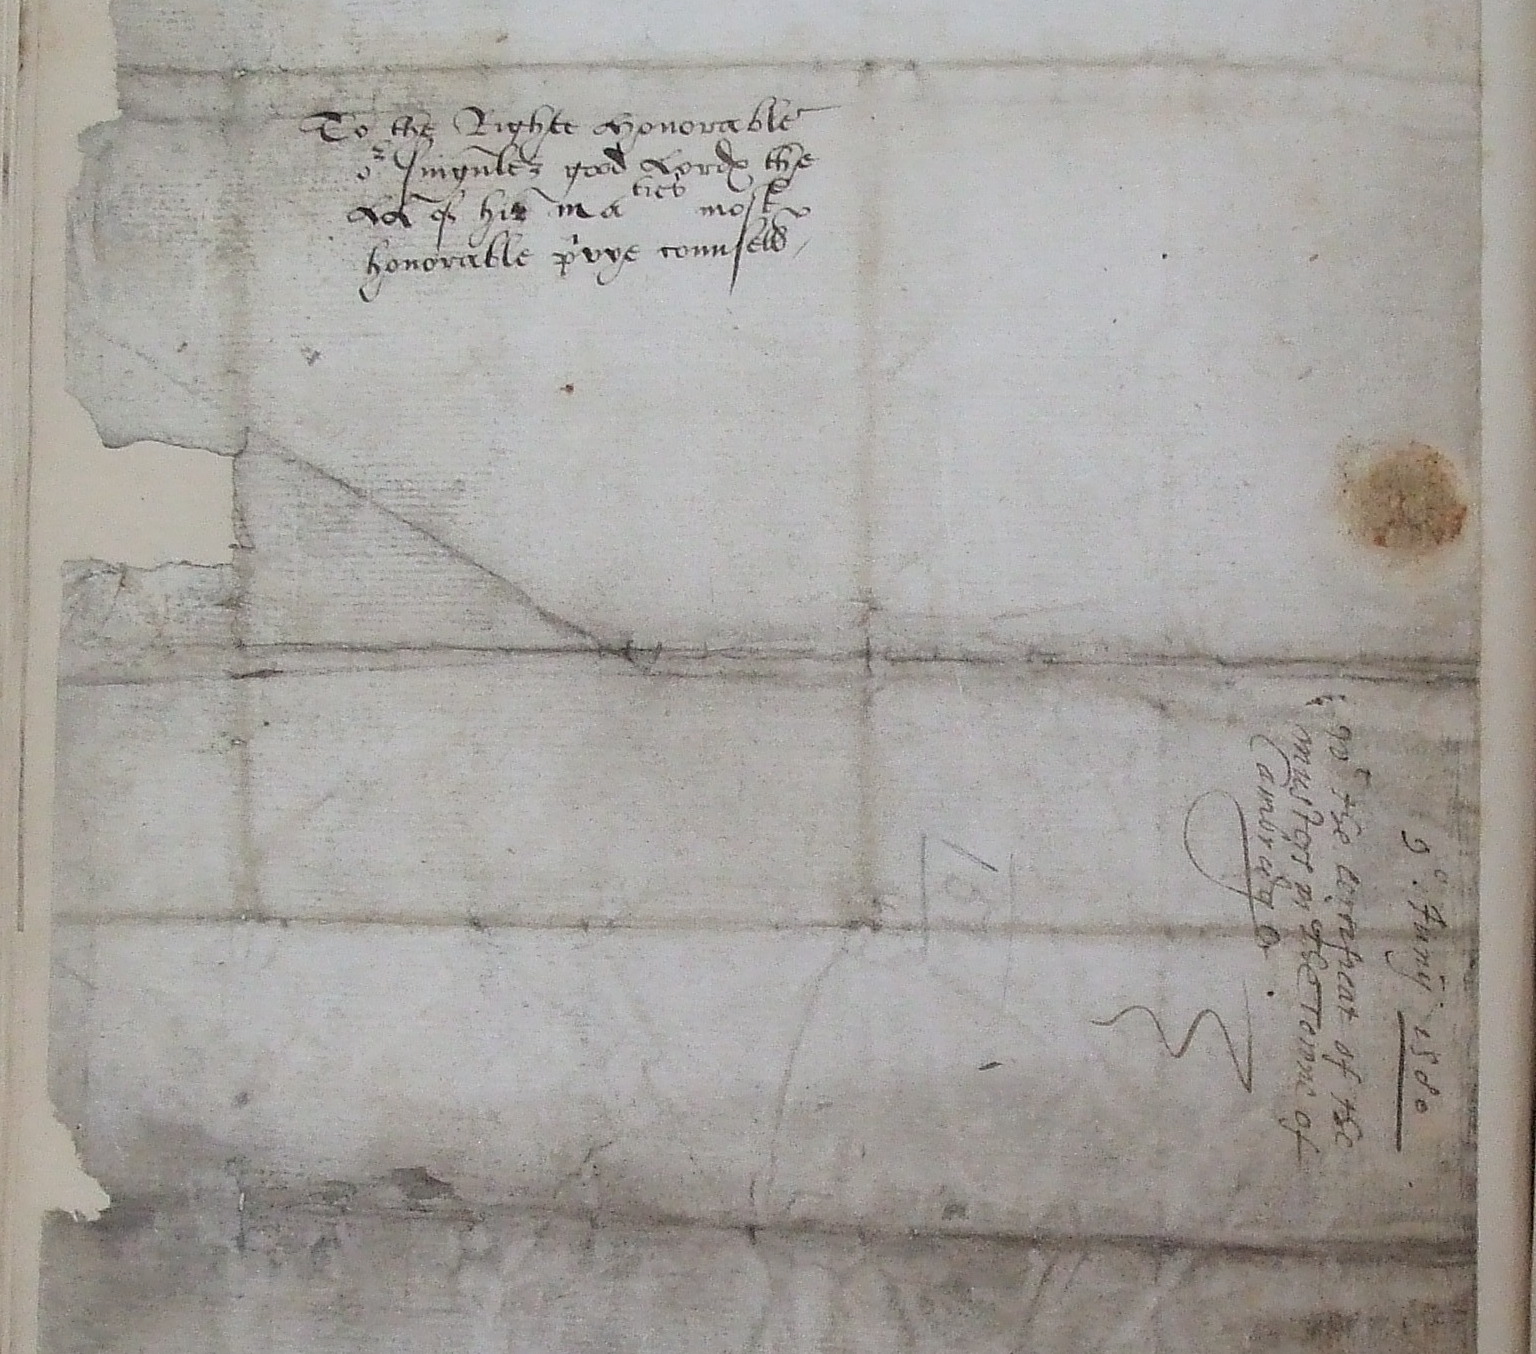 To the Right honorable
or singuler good Lordes the
LL of hir maties most
honorable privye counsell
9o. Junij. 1580
the certificat of the
musters in the Towne of
Cambridge.